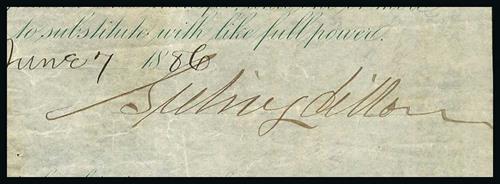 to substitute with like full power.
June 7 1886
Sidney Dillon